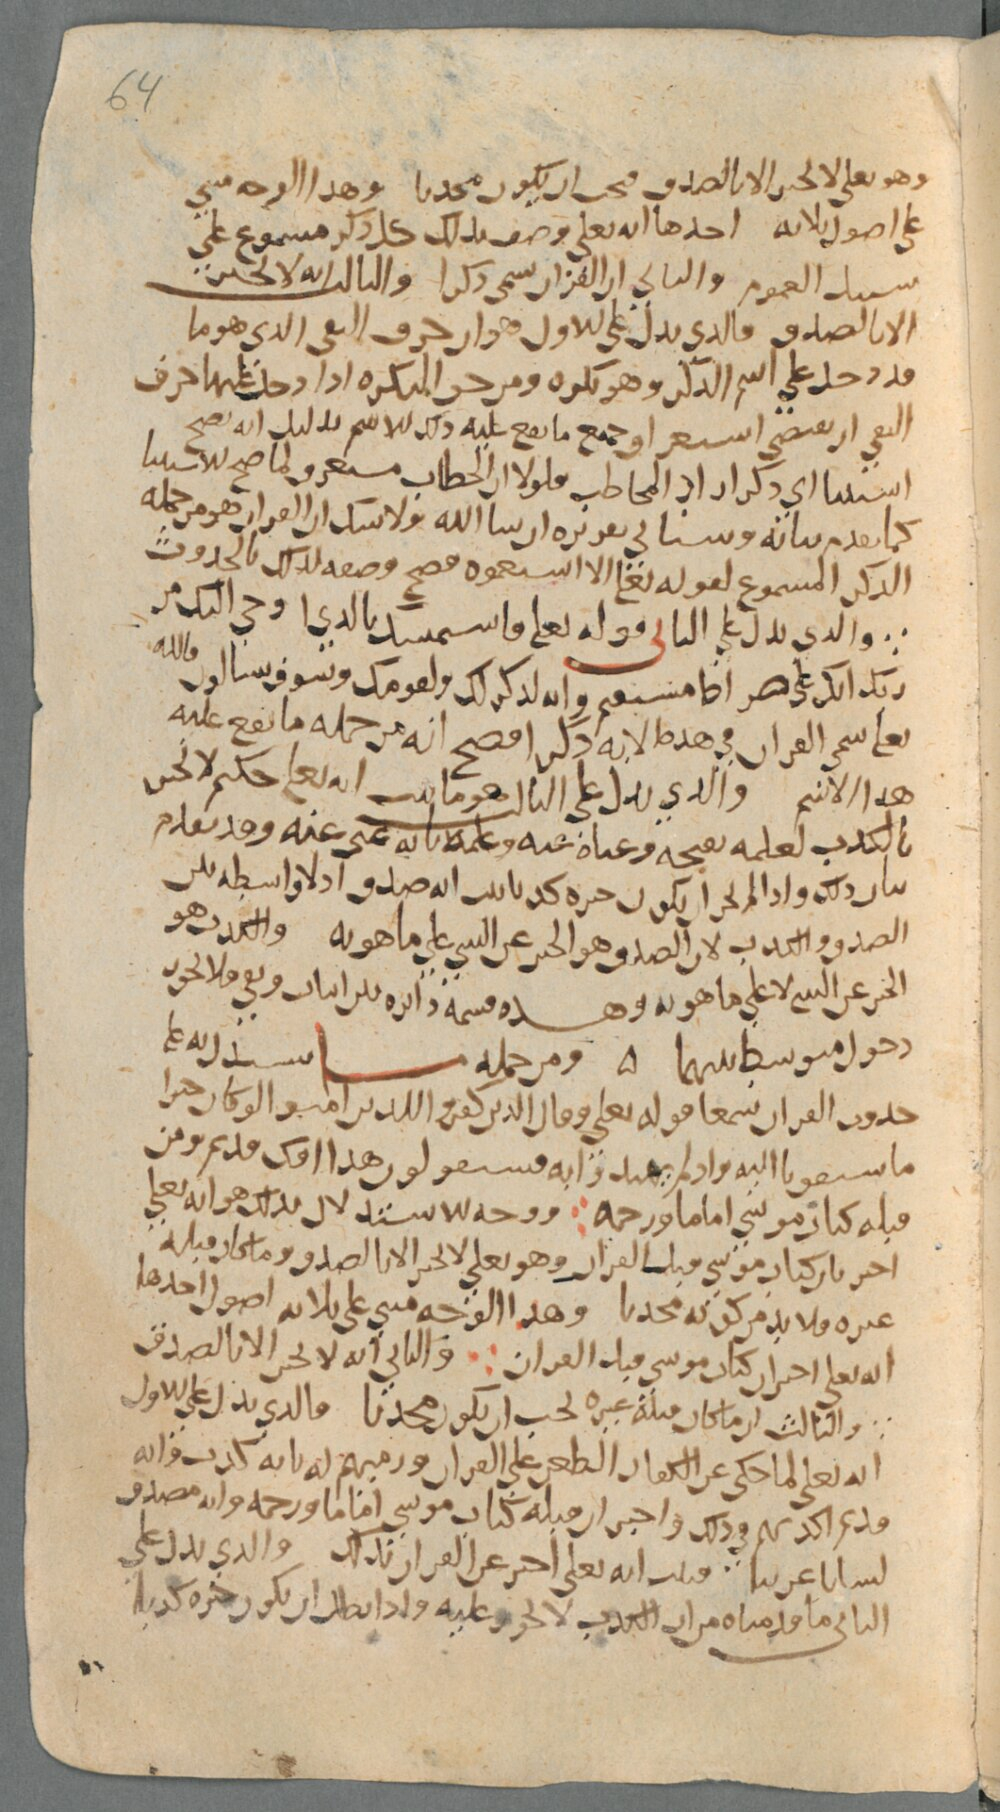 64
وهو تعالى لا يخبر الا بالصدق فيجب ان يكون محدثا وهذا الوجه مبني
على اصول ثلاثه احدها انه تعالى وصف بذلك كل ذكر مسموع على
سبيل العموم والثاني ان القران يسمى ذكرا والثالث انه لا يخبر
الا بالصدق فالذي يدل على الاول هو ان حرف النفي الذي هو ما
قد دخل على اسم الذكر وهو نكره ومن حق النكره اذا دخل عليها حرف
النفي ان يقتضي استغراق جميع ما يقع عليه ذلك الاسم بدليل انه يصح
استثنا اي ذكر اراد المخاطب فلولا ان الخطاب مستغرق لما صح الاستثنا
كما تقدم بيانه وسياتي تقريره ان شا الله ولا شك ان القران هو من جمله
الذكر المسموع لقوله تعالى الا استمعوه فصح وصفه لذلك بالحدوث
والذي يدل على الثاني قوله تعالى فاستمسك بالذي اوحي اليك من
ربك انك على صراط مستقيم وانه لذكر لك ولقومك وسوف تسالون فالله
تعالى سمى القران في هذه الايه ذكرا فصح انه من جمله ما يقع عليه
هذا الاسم والذي يدل على الثالث هو ما ثبت انه تعالى حكيم لا يخبر
بالكذب لعلمه بقبحه وغناه عنه وعلمه بانه غني عنه وقد تقدم
بيان ذلك واذا لم يجز ان يكون خبره كذبا ثبت انه صدق اذ لا واسطه بين
الصدق والكذب لان الصدق هو الخبر عن الشي على ما هو به والكذب هو
الخبر عن الشي لا على ما هو به وهذه قسمه دائره بين اثبات ونفي فلا يجوز
دخول متوسط بينهما ٥ ومن جمله ما يستدل به على
حدوث القران سمعا قوله تعالى وقال الذين كفروا للذين امنوا لو كان خيرا
ما سبقونا اليه واذ لم يهتدوا به فسيقولون هذا افك قديم ومن
قبله كتاب موسى اماما ورحمه ووجه الاستدلال بذلك هو انه تعالى
اخبر بان كتاب موسى قبل القران وهو تعالى لا يخبر الا بالصدق وما كان قبله
غيره فلا بد من كونه محدثا وهذا الوجه مبني على ثلاثه اصول احدها
انه تعالى اخبر ان كتاب موسى قبل القران والثاني انه لا يخبر الا بالصدق
والثالث ان ما كان قبله غيره يجب ان يكون محدثا فالذي يدل على الاول
انه تعالى لما حكى عن الكفار الطعن على القران ورميهم له بانه كذب وانه
قديم اكذبهم في ذلك واخبر ان قبله كتاب موسى اماما ورحمه وانه مصدق
لسانا عربيا فثبت انه تعالى اخبر عن القران بذلك والذي يدل على
الثاني ما قدمناه من ان الكذب لا يجوز عليه واذا بطل ان يكون خبره كذبا